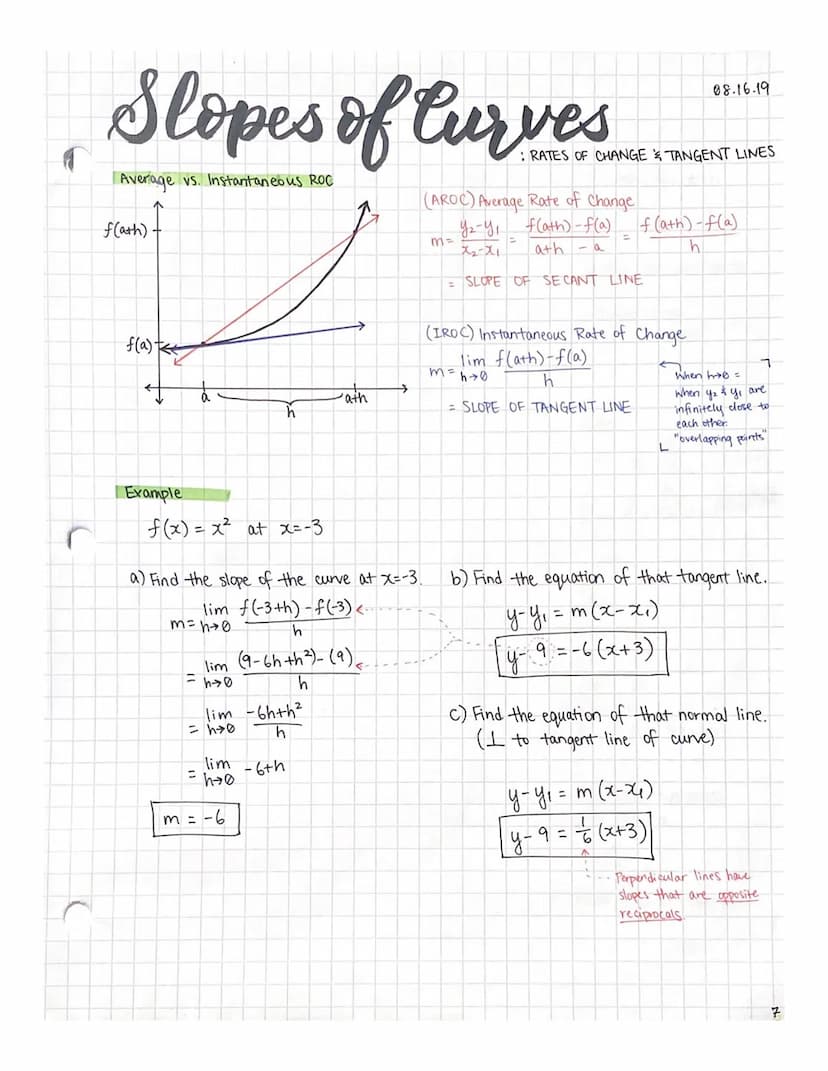 08.16.19
Slopes of Curves
: RATES OF CHANGE & TANGENT LINES
Average vs. Instantaneous ROC
f(a+h)
f(a)
a
h
a+h
(AROC) Average Rate of Change
m = (y₂-y₁)/(x₂-x₁) = (f(a+h)-f(a))/(a+h - a) = (f(a+h)-f(a))/h
= SLOPE OF SECANT LINE
(IROC) Instantaneous Rate of Change
m = lim h→0 (f(a+h)-f(a))/h
= SLOPE OF TANGENT LINE
When h→0 =
when y₂ & y₁ are
infinitely close to
each other.
"overlapping points"
Example
f(x) = x² at x=-3
a) Find the slope of the curve at x=-3.
m = lim h→0 (f(-3+h)-f(-3))/h
= lim h→0 ((9-6h+h²)-(9))/h
= lim h→0 (-6h+h²)/h
= lim h→0 -6+h
m = -6
b) Find the equation of that tangent line.
y-y₁ = m(x-x₁)
y-9 = -6(x+3)
c) Find the equation of that normal line.
(⊥ to tangent line of curve)
y-y₁ = m(x-x₁)
y-9 = 1/6(x+3)
Perpendicular lines have
slopes that are opposite
reciprocals
7